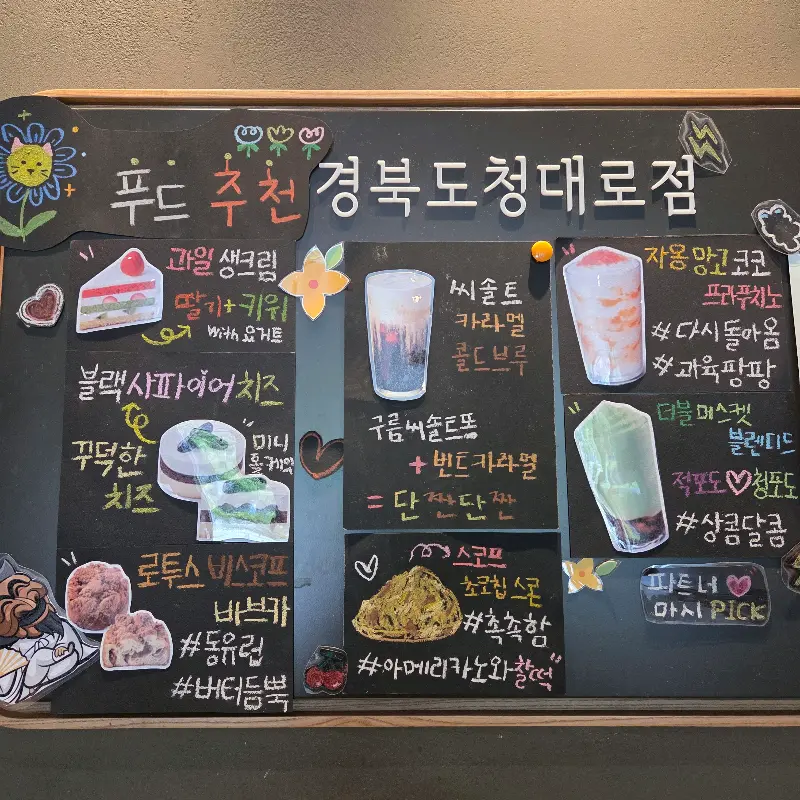 푸드 추천
경북도청대로점
과일 생크림
딸기+키위
with 요거트
블랙사파이어치즈
꾸덕한
치즈
미니
홀케익
로투스 비스코프
바브카
#동유럽
#버터듬뿍
씨솔트
카라멜
콜드브루
구름씨솔트폼
+ 번트카라멜
= 단짠단짠
스코프
초코칩스콘
#촉촉함
#아메리카노와찰떡
자몽망고코코
프라푸치노
#다시돌아옴
#과육팡팡
더블머스캣
블렌디드
적포도♡청포도
#상콤달콤
파트너
마시PICK